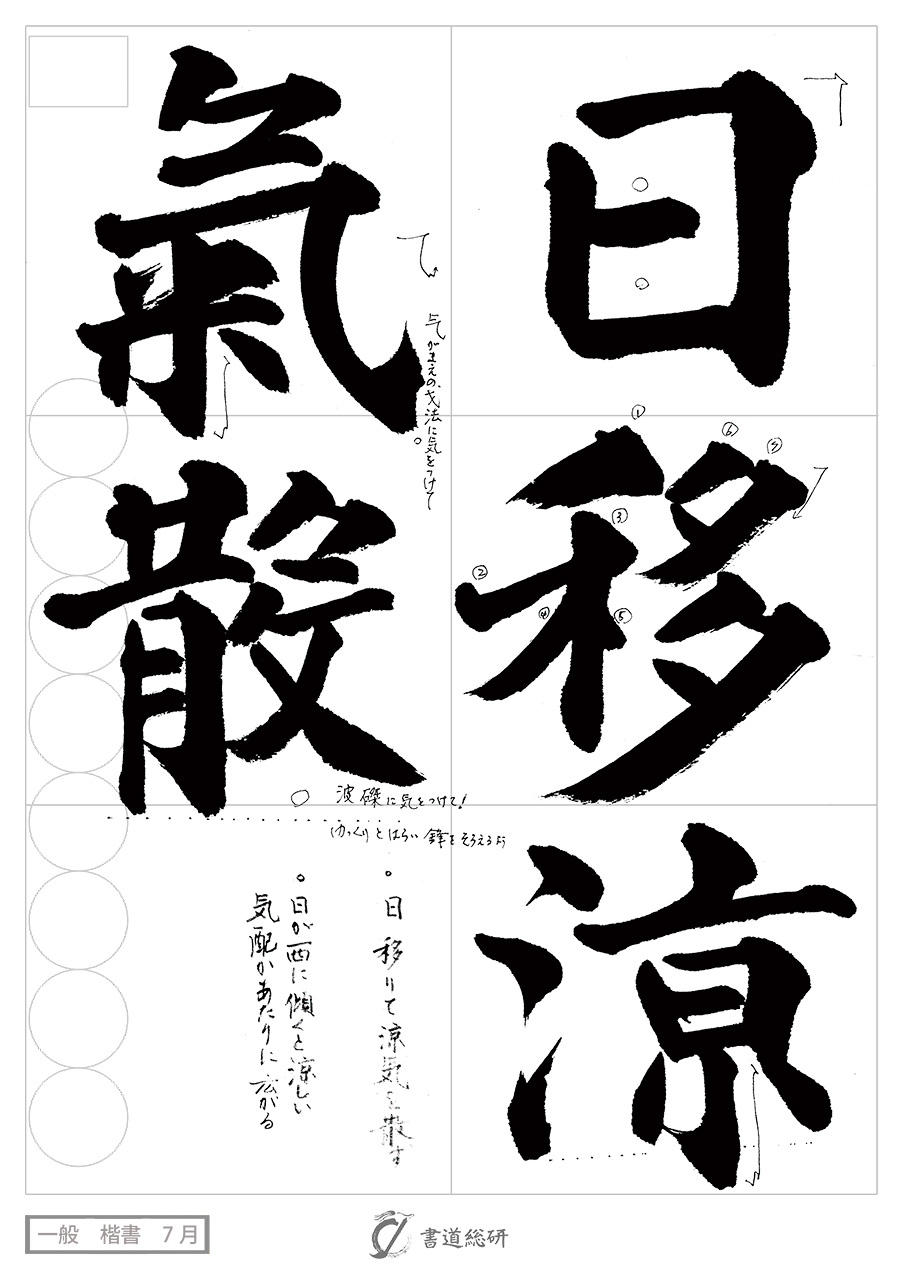 日移涼
氣散
①
②
③
④
⑤
⑥
⑤
気がまえの戈法に気をつけて。
波磔に気をつけて!
ゆっくりとはらい鋒をそろえるよう
。日移りて涼気を散す
。日が西に傾くと涼しい
気配があたりに広がる
一般 楷書 7月
書道総研